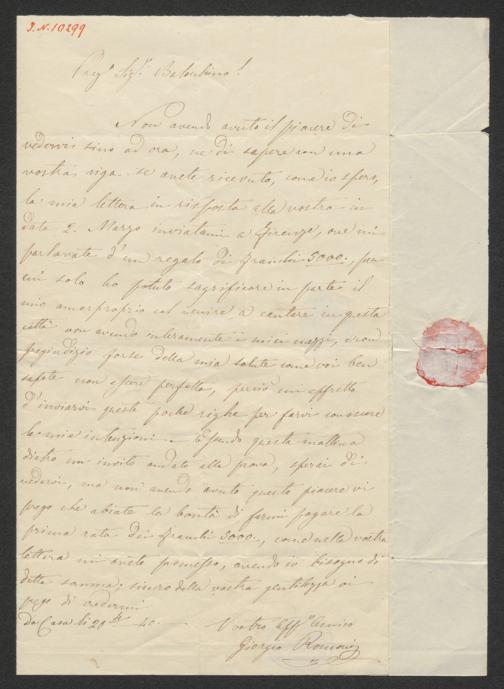 I.N. 10299
Preg.o Sig.r Balochino!
Non avendo avuto il piacere di
vedervi sino ad ora, ne di sapere con una
vostra riga se avete ricevuto, come io spero,
la mia lettera in risposta alla vostra in
data 2. Marzo inviatami a Firenze, ove mi
parlavate d'un regalo di Franchi 3000., per
cui solo ho potuto sagrificare in parte il
mio amor proprio col venire a cantare in questa
città non avendo interamente i miei mezzi, e con
pregiudizio forse della mia salute come voi ben
sapete non essere perfetta, perciò mi affretto
d'inviarvi queste poche righe per farvi conoscere
le mie intenzioni. Essendo questa mattina
dietro un invito andato alla prova, sperai di
vedervi, ma non avendo avuto questo piacere vi
prego che abiate la bontà di farmi pagare la
prima rata dei Franchi 3000., come nella vostra
lettera mi avete promesso, avendo io bisogno di
detta somma; sicuro della vostra gentilezza vi
prego di credermi
Da Casa li 29 40.
Vostro Aff.o Amico
Giorgio Ronconi